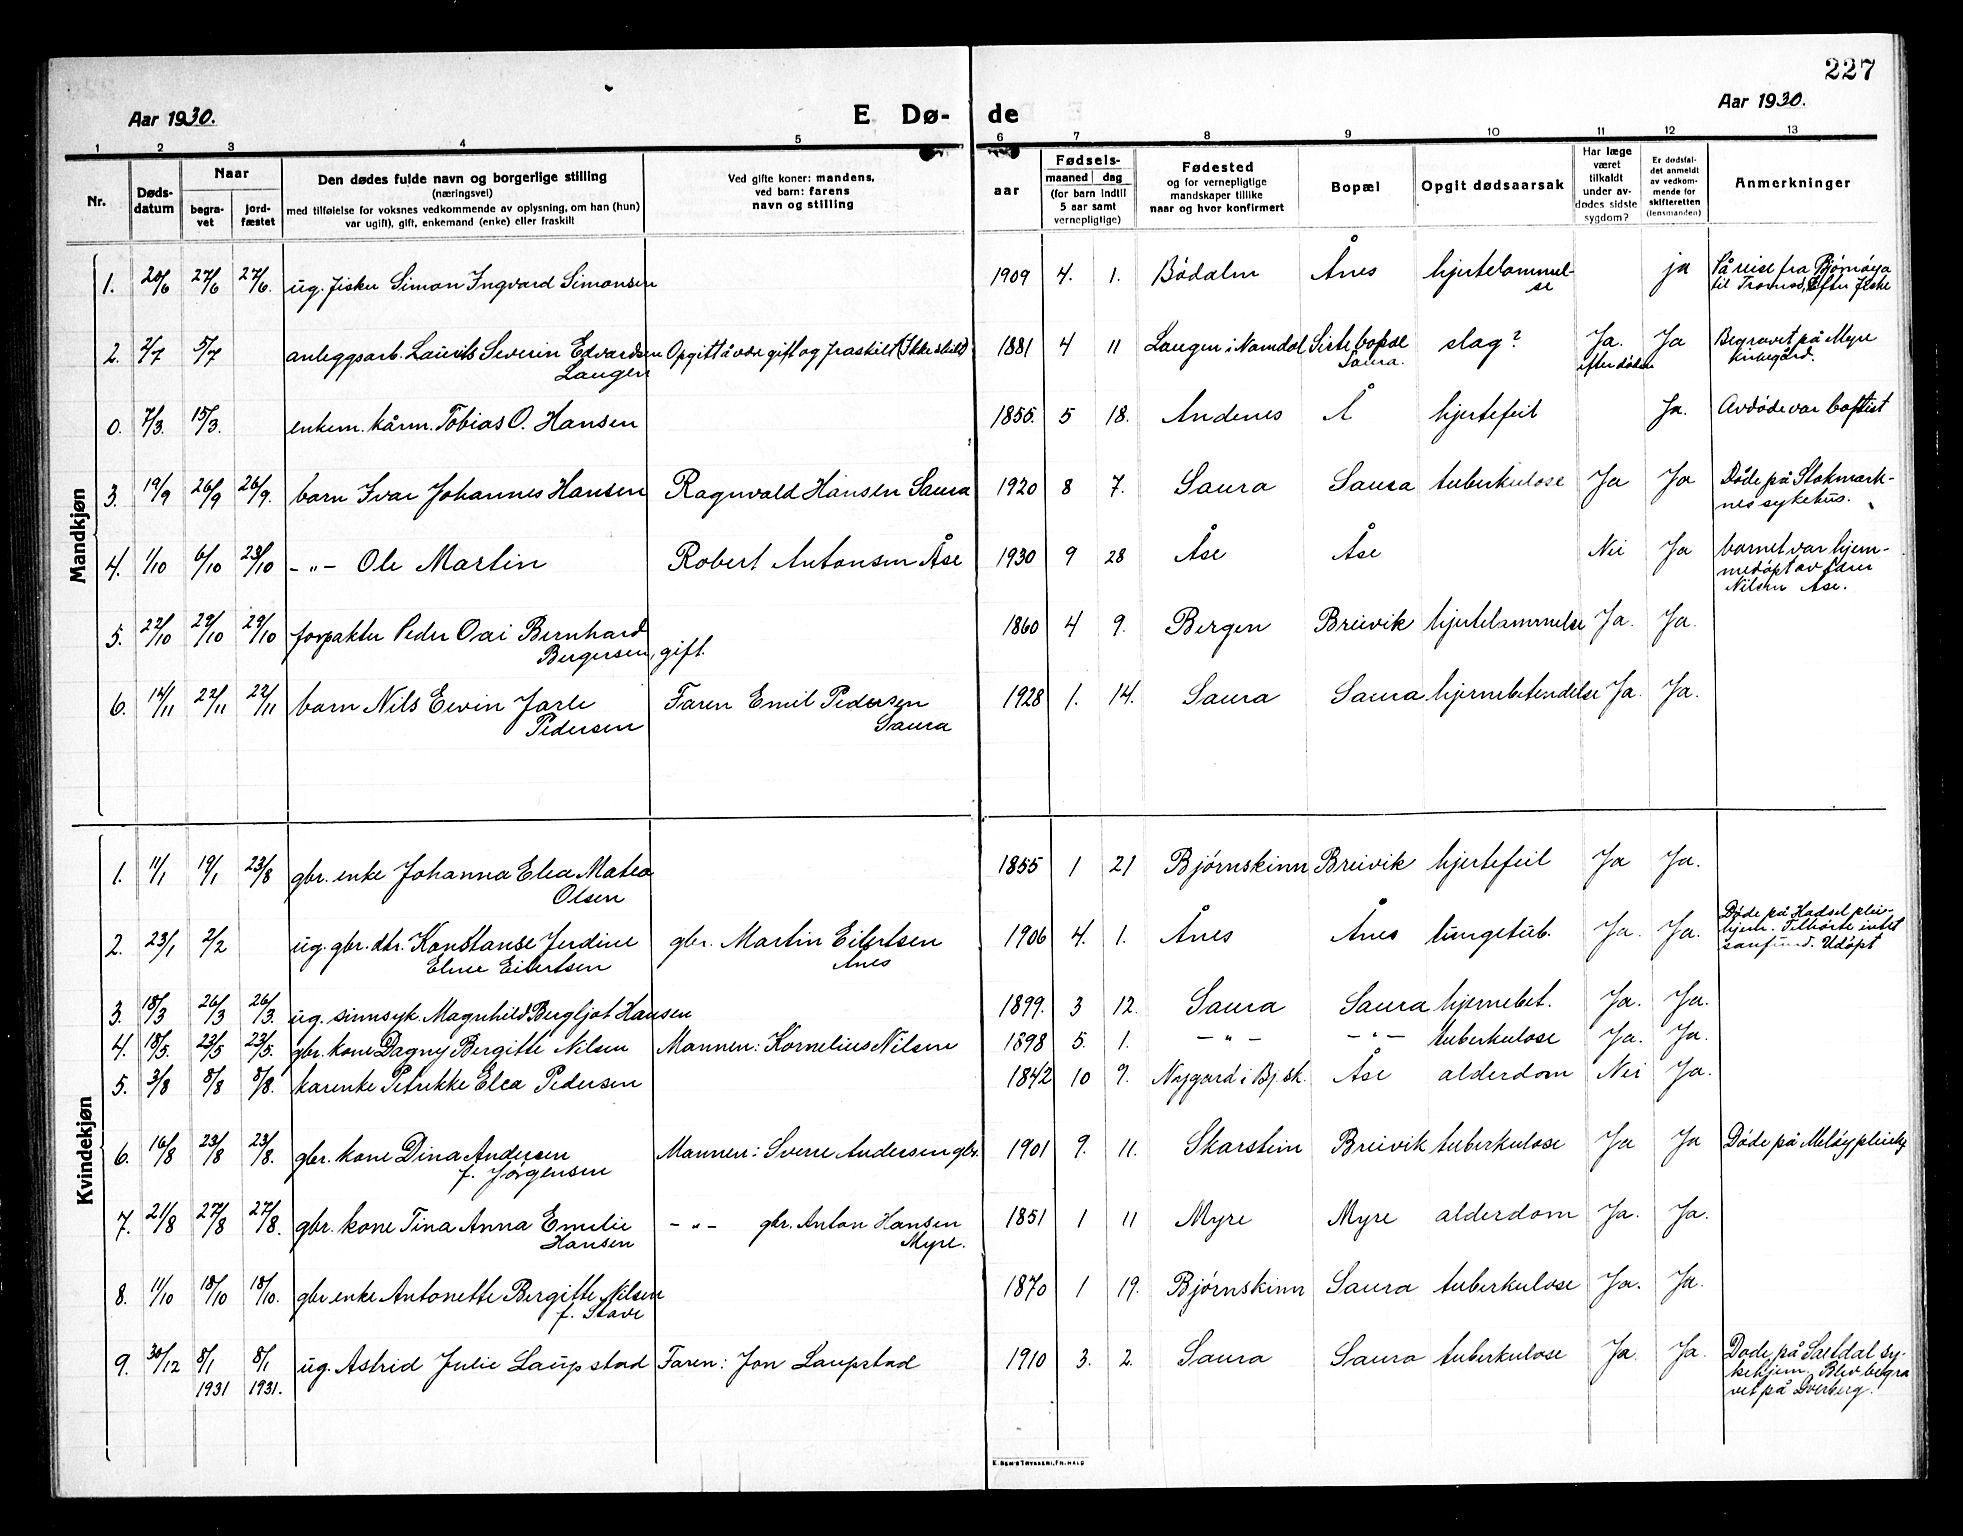 227
Aar 1930.
E Dø-
de
Aar 1930.
1 2 3 4 5 6 7 8 9 10 11 12 13
Nr.
Døds-
datum
Naar
begra-
vet
jord-
fæstet
Den dødes fulde navn og borgerlige stilling
(næringsvei)
med tilføielse for voksnes vedkommende av oplysning, om han (hun)
var ugift), gift, enkemand (enke) eller fraskilt
Ved gifte koner: mandens,
ved barn: farens
navn og stilling
Fødsels-
aar
maaned dag
(for barn indtil
5 aar samt
vernepligtige)
Fødested
og for vernepligtige
mandskaper tillike
naar og hvor konfirmert
Bopæl
Opgit dødsaarsak
Har læge
været
tilkaldt
under av-
dødes sidste
sygdom?
Er dødsfal-
det anmeldt
av vedkom-
mende for
skifteretten
(lensmanden)
Anmerkninger
Mandkjøn
1. 20/6 27/6 27/6. ug. fisker Simon Ingvard Simonsen 1909 4. 1. Bödalm Ånes hjertelammel-
se ja På reise fra Bjørnøya
til Tromsö, Efter fiske
2. 2/7 5/7 anleggsarb. Laurits Severin Edvardsen
Laugen Opgitt å være gift og fraskilt (Ikke skild) 1881 4 11 Laugen i Namdal Siste bopæl
Saura. slag? Ja.
efter døden Ja Begravet på Myre
kirkegård.
0. 7/3. 15/3. enkem. kårm. Tobias O. Hansen 1855. 5 18. Andenes Å hjertefeil Ja. Avdøde var baptist
3. 19/9 26/9 26/9. barn Ivar Johannes Hansen Ragnvald Hansen Saura 1920 8 7. Saura Saura tuberkulose Ja Ja Døde på Stokmark-
nes sykehus.
4. 1/10 6/10 23/10 -"- Ole Martin Robert Antonsen Åse 1930 9 28 Åse Åse Nei Ja barnet var hjem-
medöpt av Lærer
Nilsen Åse.
5. 22/10 29/10 29/10 forpakter Peder Oai Bernhard
Bergersen, gift. 1860 4 9. Bergen Breivik hjertelammelse Ja. Ja.
6. 14/11 22/11 22/11 barn Nils Eevin Jarle
Pedersen Faren Emil Pedersen
Saura 1928 1. 14. Saura Saura hjernebetendelse Ja. Ja.
Kvindekjøn
1. 11/1 19/1 23/8 gbr. enke Johanna Elea Matea
Olsen 1855 1 21 Bjørnskinn Breivik hjertefeil Ja Ja.
2. 23/1 2/2 ug. gbr. dtr. Konstanse Jerdine
Eline Eilertsen gbr. Martin Eilertsen
Ånes 1906 4. 1. Ånes Ånes lungetub. Ja. Ja. Døde på Hadsel pleie-
hjem. Tilhörte intet
samfund. Udöpt
3. 18/3 26/3 26/3. ug. sinnsyk Magnhild Bergljot Hansen 1899. 3 12. Saura Saura hjernebet. Ja. Ja.
4. 18/5. 23/5 23/5. gbr. kone Dagny Bergitte Nilsen Mannen: Kornelius Nilsen 1898 5. 1. -"- -"- tuberkulose Ja. Ja.
5. 3/8 8/8 8/8. kårenke Petrikke Elea Pedersen 1842 10 9. Nøjgard i Bj.sk. Åse alderdom Nei Ja.
6. 16/8 23/8 23/8. gbr. kone Dina Andersen
f. Jørgensen Mannen: Sverre Andersen gbr. 1901 9. 11. Skarstein Breivik tuberkulose Ja Ja Døde på Meløy pleiehj.
7. 21/8 27/8 27/8. gbr. kone Tina Anna Emelie
Hansen -"- gbr. Anton Hansen
Myre. 1851 1 11 Myre Myre alderdom Ja. Ja.
8. 11/10 18/10 18/10. gbr enke Antonette Bergitte Nilsen
f. Stave 1870 1 19. Bjørnskinn Saura tuberkulose Ja. Ja.
9. 30/12 8/1
1931 8/1
1931. ug. Astrid Julie Laupstad Faren: Jon Laupstad 1910 3. 2. Saura Saura tuberkulose Ja. Ja. Døde på Saltdal sy-
kehjem, Blev begra
vet på Dverberg.
E. SEM'S TRYKKERI, FR.HALD